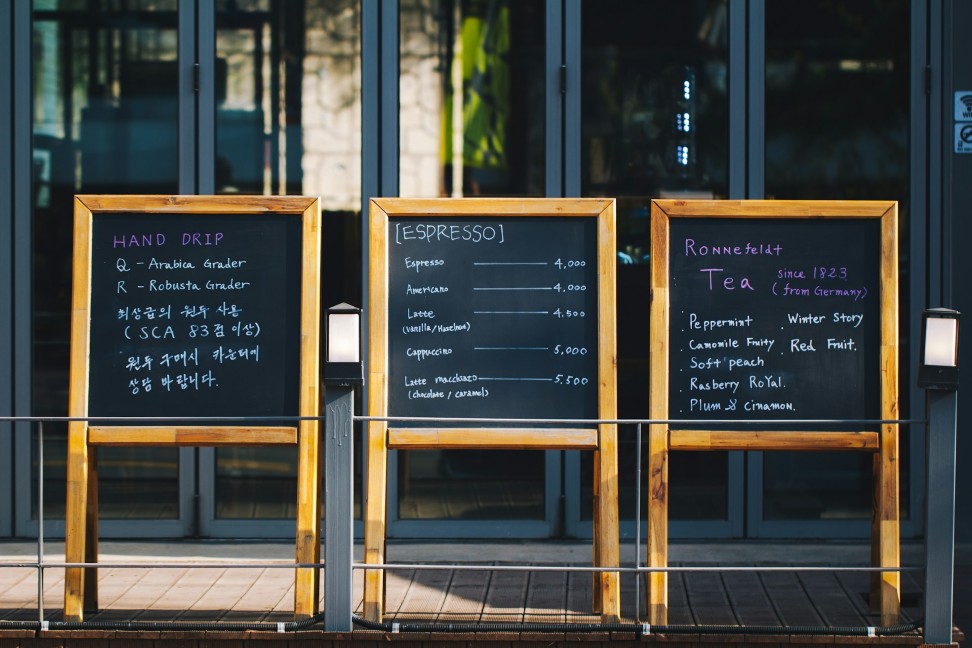 HAND DRIP
Q - Arabica Grader
R - Robusta Grader
최상급의 원두 사용
( SCA 83점 이상)
원두 구매시 카운터에
상담 바랍니다.
[ESPRESSO]
Espresso 4,000
Americano 4,000
Latte 4.500
(Vanilla/Hazelnut)
Cappuccino 5,000
Latte macchiato 5.500
(chocolate / caramel)
Ronnefeldt
Tea since 1823
( from Germany)
. Peppermint
. Camomile Fruity
. Soft peach
. Rasberry Royal.
. Plum & cinamon.
. Winter Story
. Red Fruit.